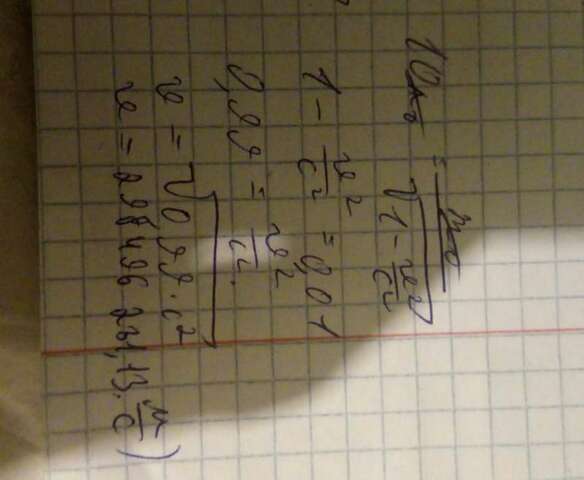 10m₀ = m₀/√(1 - v²/c²)
1 - v²/c² = 0,01
0,99 = v²/c²
v = √(0,99·c²)
v = 298496231,13 м/с)